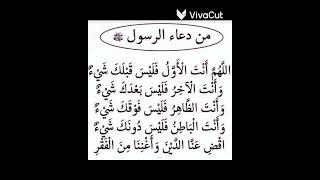 VivaCut
من دعاء الرسول ﷺ
اللَّهُمَّ أَنْتَ الْأَوَّلُ فَلَيْسَ قَبْلَكَ شَيْءٌ
وَأَنْتَ الْآخِرُ فَلَيْسَ بَعْدَكَ شَيْءٌ
وَأَنْتَ الظَّاهِرُ فَلَيْسَ فَوْقَكَ شَيْءٌ
وَأَنْتَ الْبَاطِنُ فَلَيْسَ دُونَكَ شَيْءٌ
اقْضِ عَنَّا الدَّيْنَ وَأَغْنِنَا مِنَ الْفَقْرِ